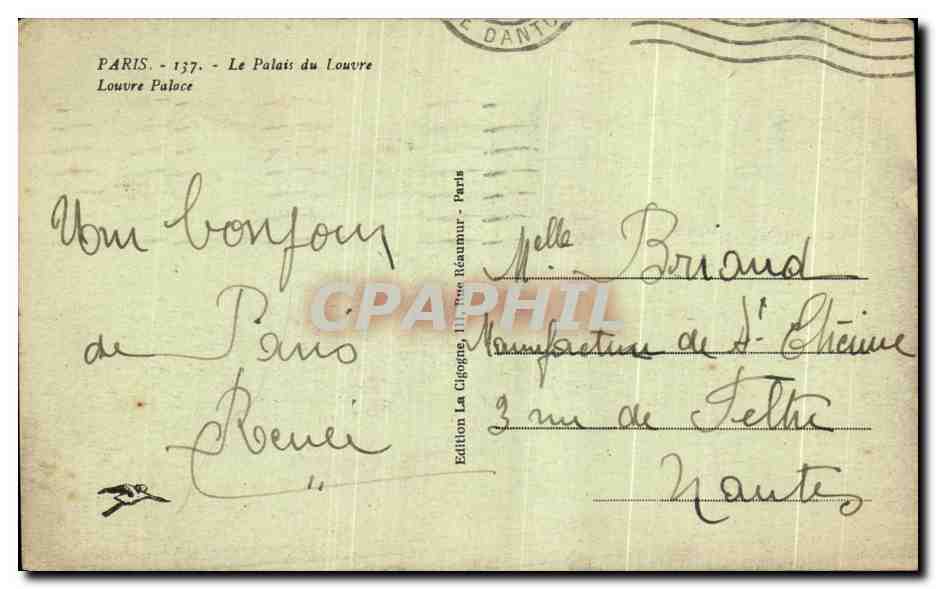 E DANTO
PARIS. - 137. - Le Palais du Louvre
Louvre Palace
Un bonjour
de Paris
Renée
Edition La Cigogne, 111, Rue Réaumur - Paris
Melle Briand
Manufacture de St Etienne
3 rue de Feltre
Nantes
CPAPHIL